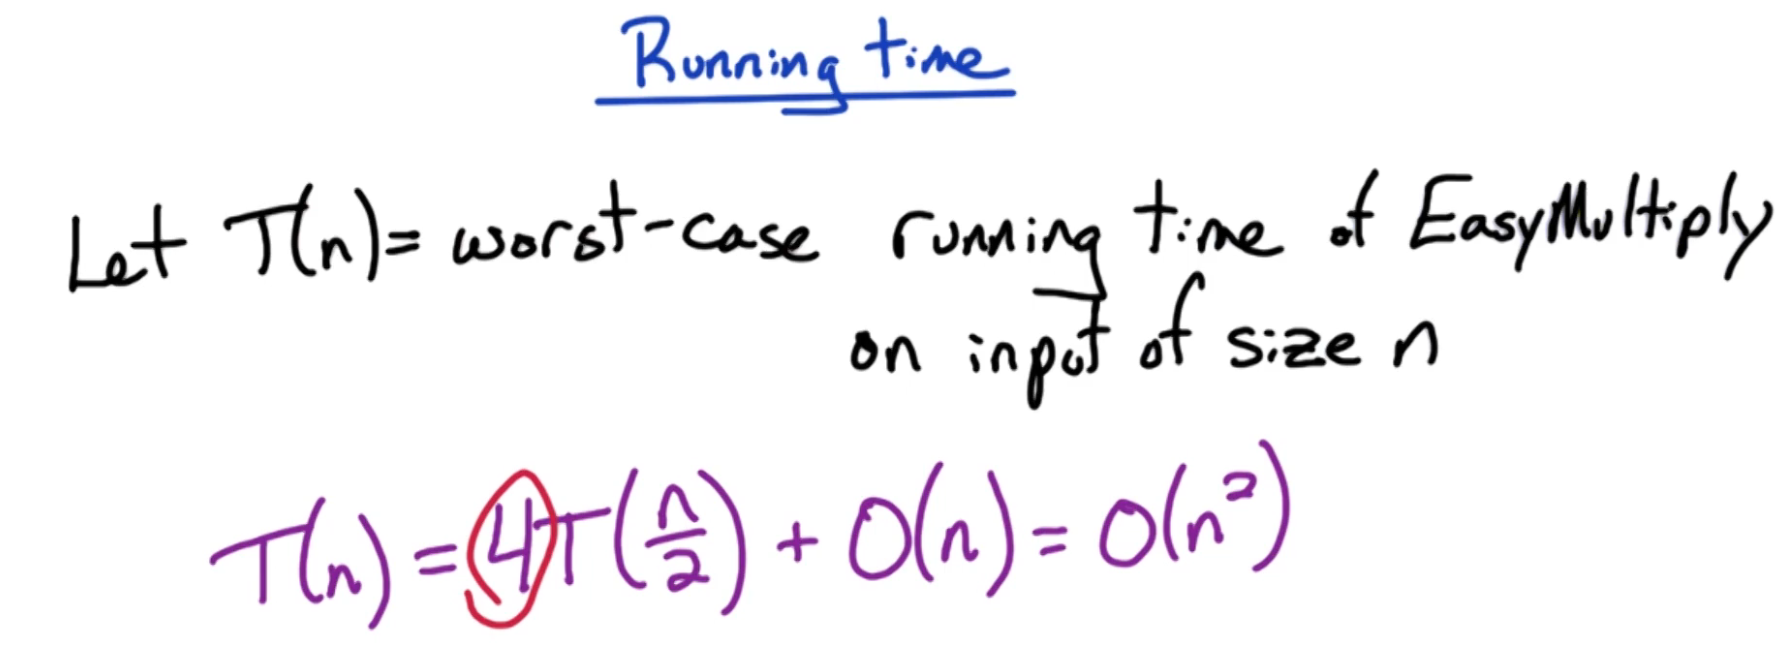 Running time
Let T(n) = worst-case running time of EasyMultiply
on input of size n
T(n) = 4T(n/2) + O(n) = O(n²)